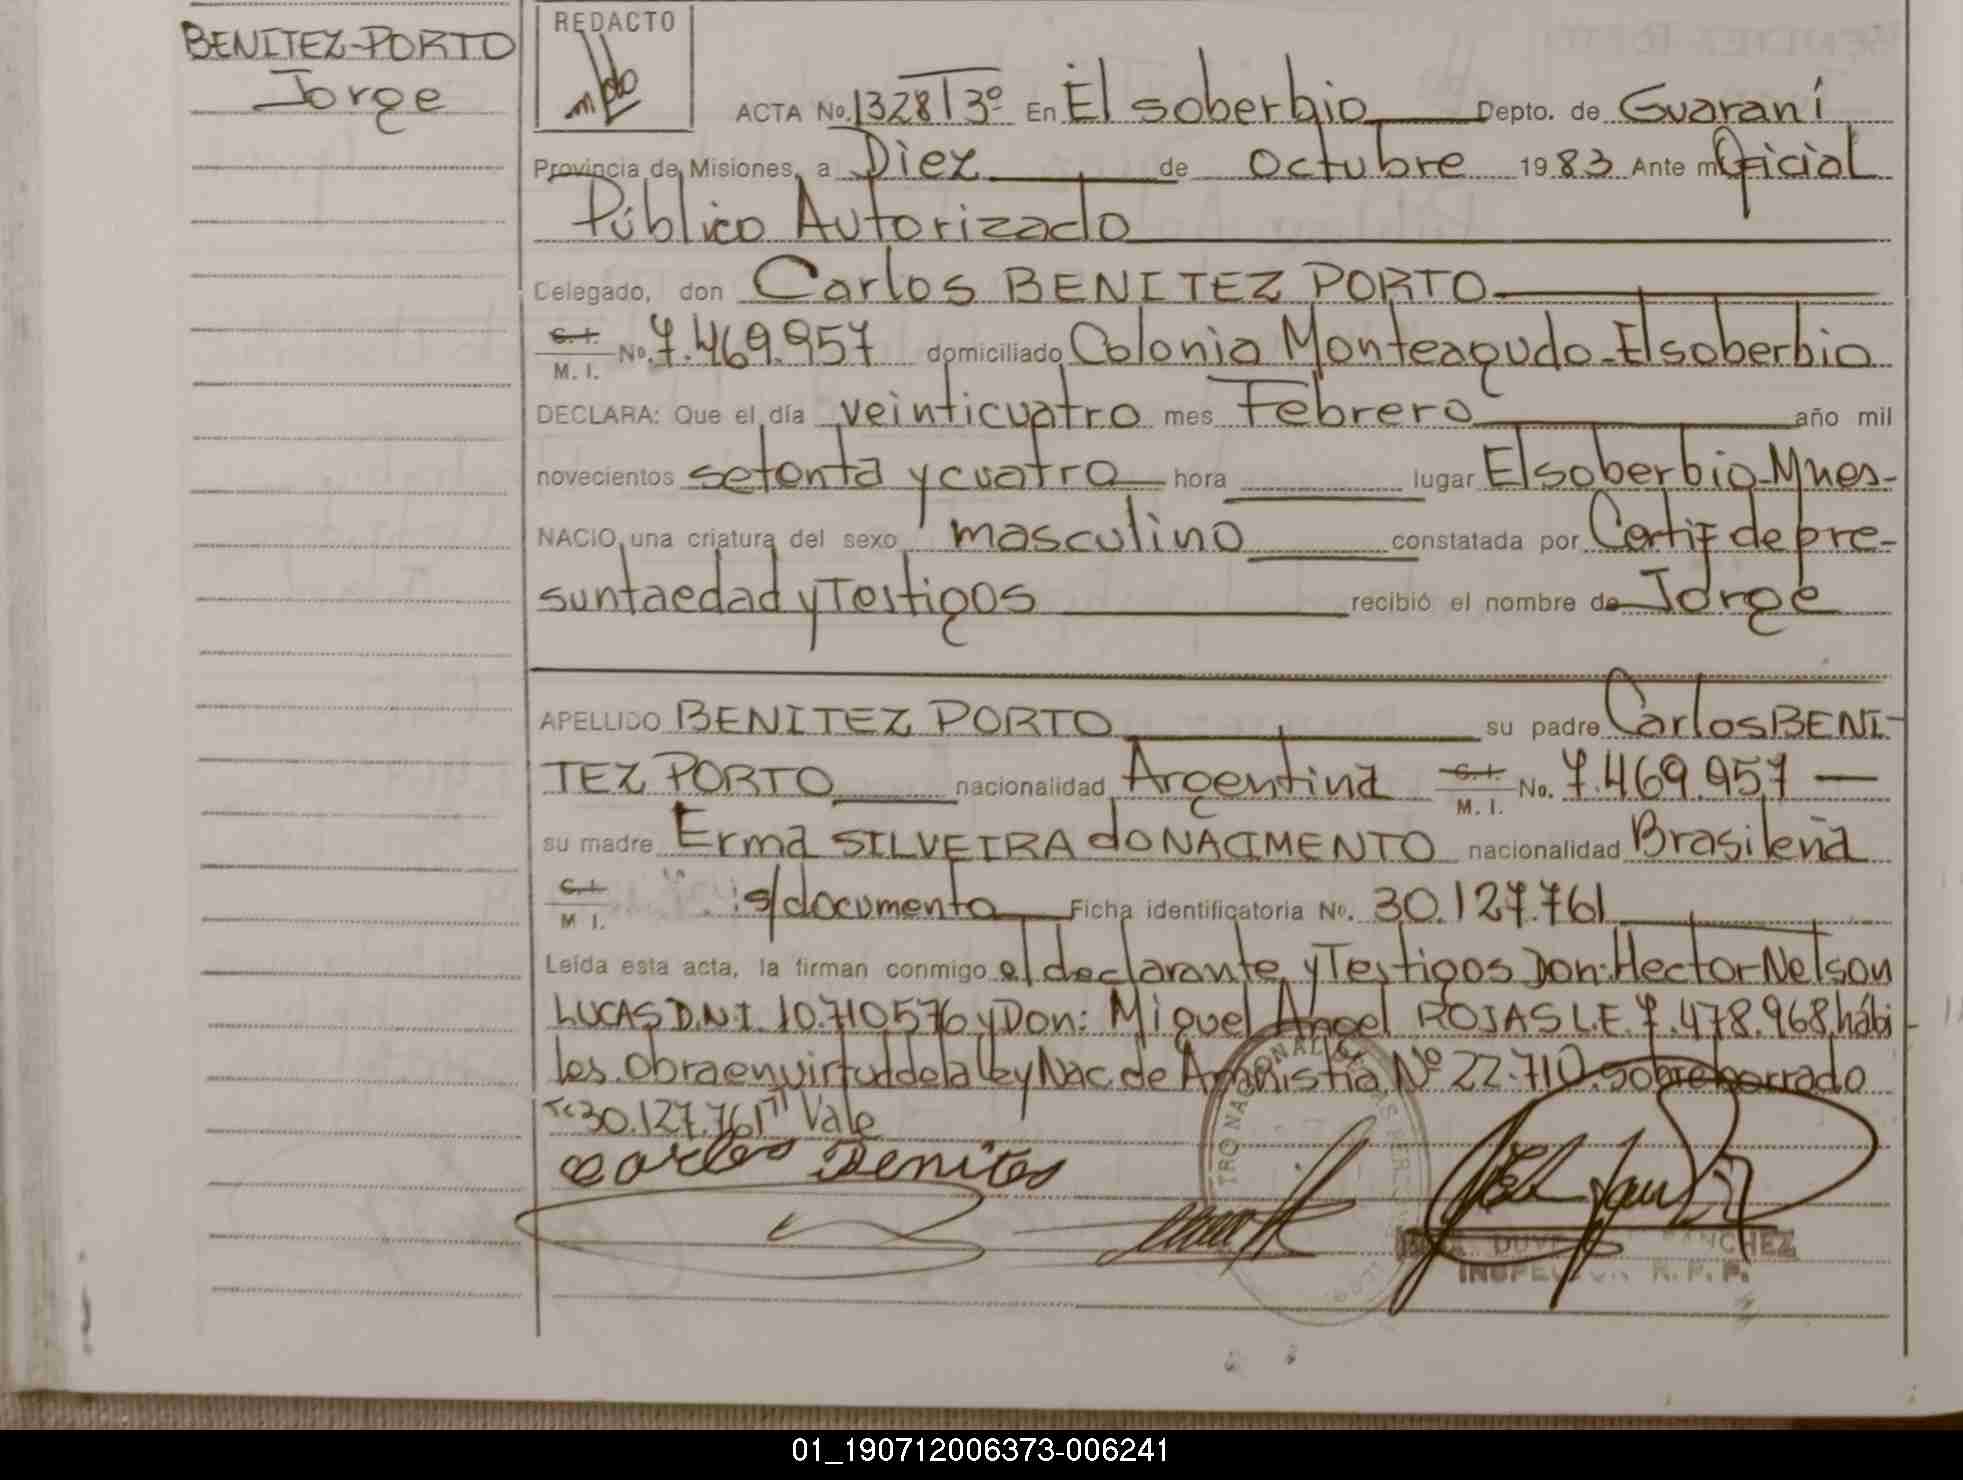 BENITEZ-PORTO
Jorge
REDACTO
ACTA No. 1328 T3º En El soberbio Depto. de Guaraní
Provincia de Misiones, a Diez de octubre 1983 Ante mí Oficial
Público Autorizado
Delegado, don Carlos BENITEZ PORTO
C.I.
M. I. No. 7.469.957 domiciliado Colonia Monteagudo-Elsoberbio
DECLARA: Que el día veinticuatro mes Febrero año mil
novecientos setenta y cuatro hora lugar Elsoberbio-Mnes-
NACIO una criatura del sexo masculino constatada por Certif de pre-
suntaedad y Testigos recibió el nombre de Jorge
APELLIDO BENITEZ PORTO su padre Carlos BENI-
TEZ PORTO nacionalidad Argentina C.I. M. I. No. 7.469.957
su madre Erma SILVEIRA do NACIMENTO nacionalidad Brasileña
C.I.
M I. s/documento Ficha identificatoria No. 30.127.761
Leída esta acta, la firman conmigo el declarante y Testigos Don: Hector Nelson
LUCAS D.N.I. 10.710.576 y Don: Miguel Angel ROJAS L.E 7.478.968 hábi-
les. Obra en virtud de la ley Nac. de Amnistia Nº 22.710. sobreborrado
"30.127.761" Vale
Carlos Benites
SANCHEZ
01_190712006373-006241